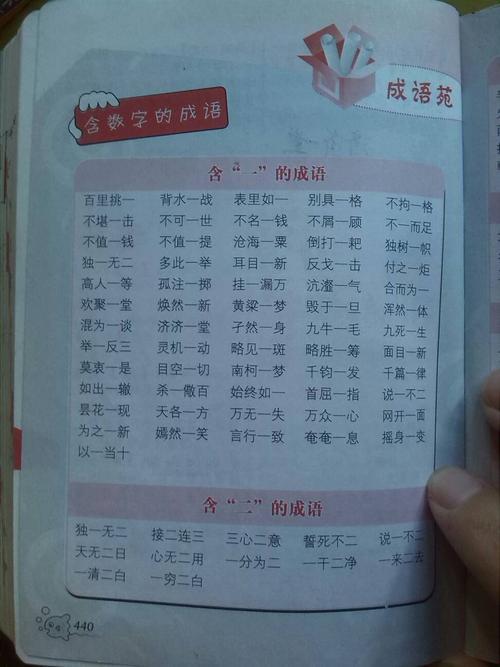 成语苑
含数字的成语
含“一”的成语
百里挑一 背水一战 表里如一 别具一格 不拘一格
不堪一击 不可一世 不名一钱 不屑一顾 不一而足
不值一钱 不值一提 沧海一粟 倒打一耙 独树一帜
独一无二 多此一举 耳目一新 反戈一击 付之一炬
高人一等 孤注一掷 挂一漏万 沆瀣一气 合而为一
欢聚一堂 焕然一新 黄粱一梦 毁于一旦 浑然一体
混为一谈 济济一堂 孑然一身 九牛一毛 九死一生
举一反三 灵机一动 略见一斑 略胜一筹 面目一新
莫衷一是 目空一切 南柯一梦 千钧一发 千篇一律
如出一辙 杀一儆百 始终如一 首屈一指 说一不二
昙花一现 天各一方 万无一失 万众一心 网开一面
为之一新 嫣然一笑 言行一致 奄奄一息 摇身一变
以一当十
含“二”的成语
独一无二 接二连三 三心二意 誓死不二 说一不二
天无二日 心无二用 一分为二 一干二净 一来二去
一清二白 一穷二白
440